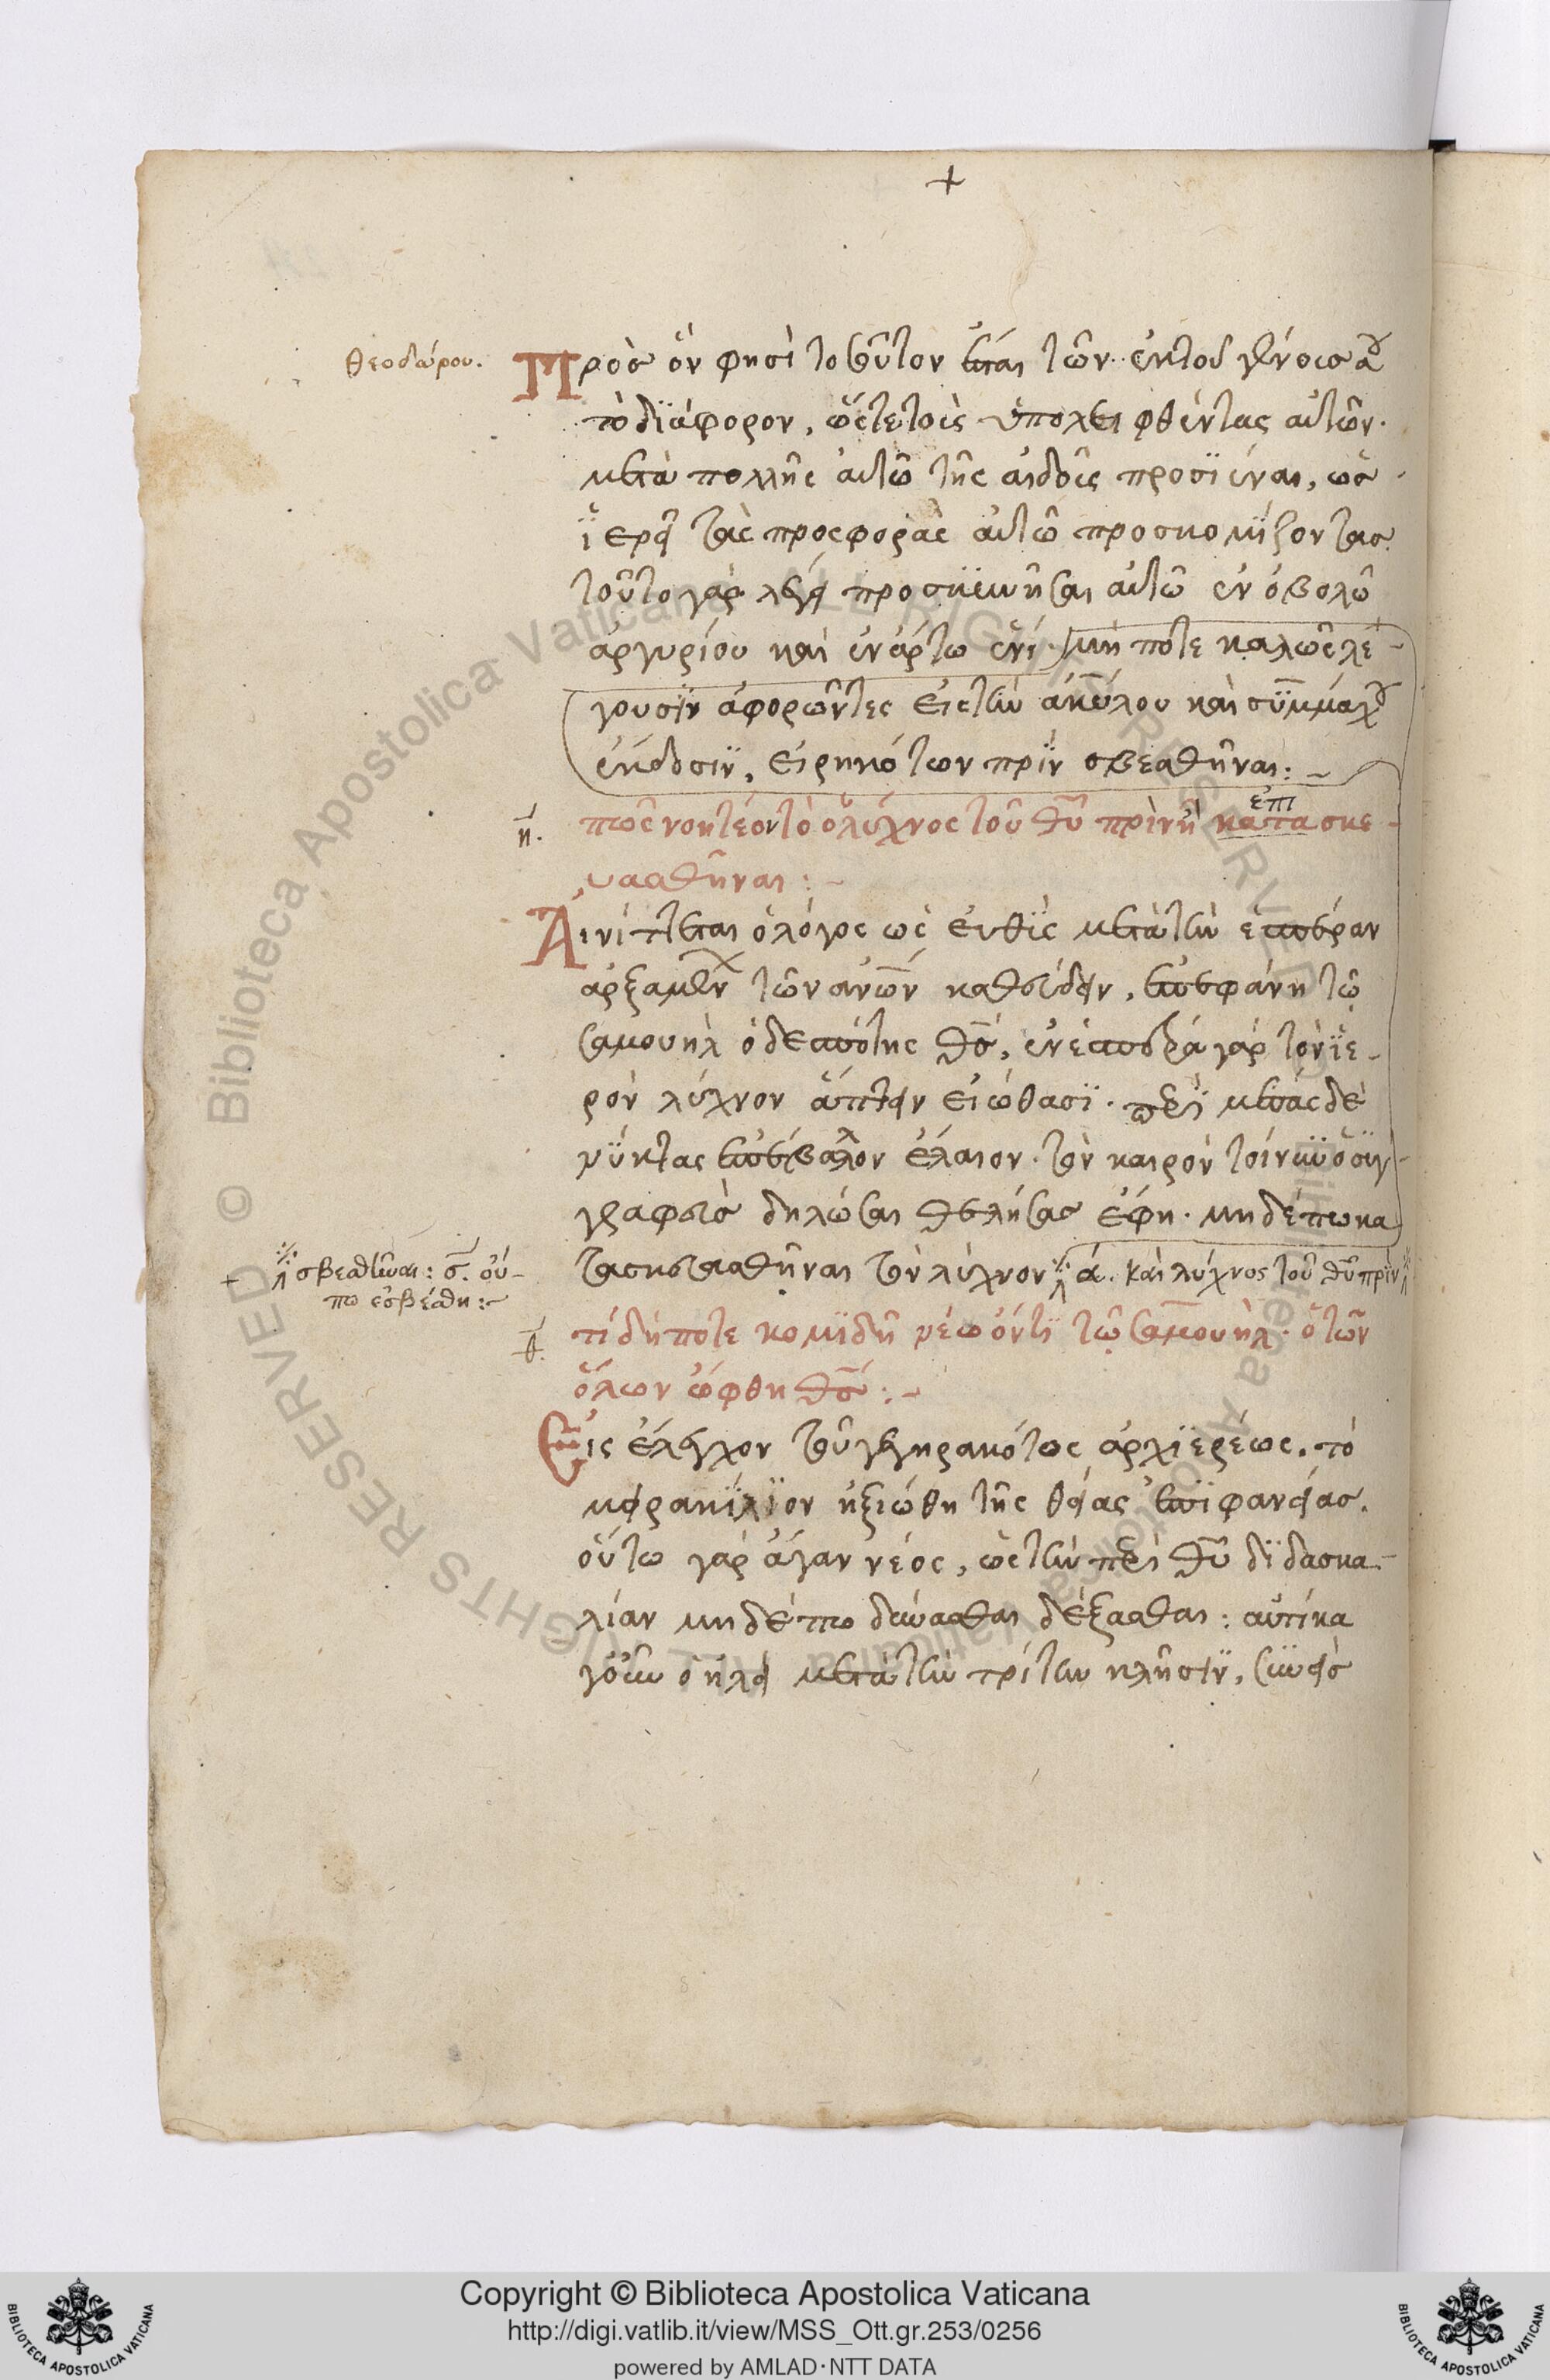 +
θεοδώρου.
Πρὸσ ὅν φησὶ τοσοῦτον ἔσται τῶν ἐκ τοῦ γένουσ α
τὸ διάφορον, ὥςτε τοὺς ὑπολειφθέντας αὐτῶν.
μετὰ πολλῆς αὐτῶ τῆς αἰδοῦς προσϊέναι, ὡσ
ϊερεῖ τὰς προςφορὰς αὐτῶ προσκομίζοντασ.
τοῦτο γὰρ λέγει προσκυνῆσαι αὐτῶ ἐν ὀβολῶ
ἀργυρίου καὶ ἐν ἄρτω ἑνί· μή ποτε καλῶς λέ-
γουσϊν ἀφορῶντες εἰς τὴν ἀκύλου καὶ συμμάχου
ἔκδοσϊν, εἰρηκότων πρϊν σβεσθῆναι:~
η. πῶς νοητέον τὸ ὁ λύχνος τοῦ θυ πρὶν ἢ κατασκε-
ἐπι
υασθῆναι:~
Αἰνίττεται ὁ λόγος ὡς εὐθὺς μετὰ τὴν ἑσπέραν
ἀρξαμέν τῶν ανων καθεύδειν, ἐπεφάνη τῶ
σαμουὴλ ὁ δεσπότης θς, ἐν ἑσπέρα γὰρ τὸν ϊε-
ρὸν λύχνον ἅπτειν εἰώθασϊ. περὶ μέσας δὲ
νύκτας ἐπέβαλλον ἔλαιον. τὸν καιρὸν τοίνϋν ὁ συγ-
γραφεὺσ δηλῶσαι θελήσασ ἔφη. μηδέπω κα
τασκευασθῆναι τὸν λύχνον ἀ. καὶ λύχνος τοῦ θυ πρὶν
σβεσθῆναι: σ. οὔ-
πω ἐσβέσθη:~
θ. τί δήποτε κομϊδῆ νέω ὄντϊ τῶ σαμουὴλ. ὁ τῶν
ὅλων ὤφθη θς:~
Εἰς ἔλεγχον τοῦ γεγηρακότος ἀρχϊερέως. τὸ
μειρακύλλϊον ἠξιώθη τῆς θείας ἐπϊφανείασ.
οὕτω γὰρ ἄγαν νέος, ὡς τὴν περὶ θυ δϊδασκα-
λίαν μηδέπω δύνασθαι δέξασθαι: αὐτίκα
γοῦν ὁ ἠλεὶ μετὰ τὴν τρίτην κλῆσϊν, συνεὶσ
Copyright © Biblioteca Apostolica Vaticana
http://digi.vatlib.it/view/MSS_Ott.gr.253/0256
powered by AMLAD·NTT DATA